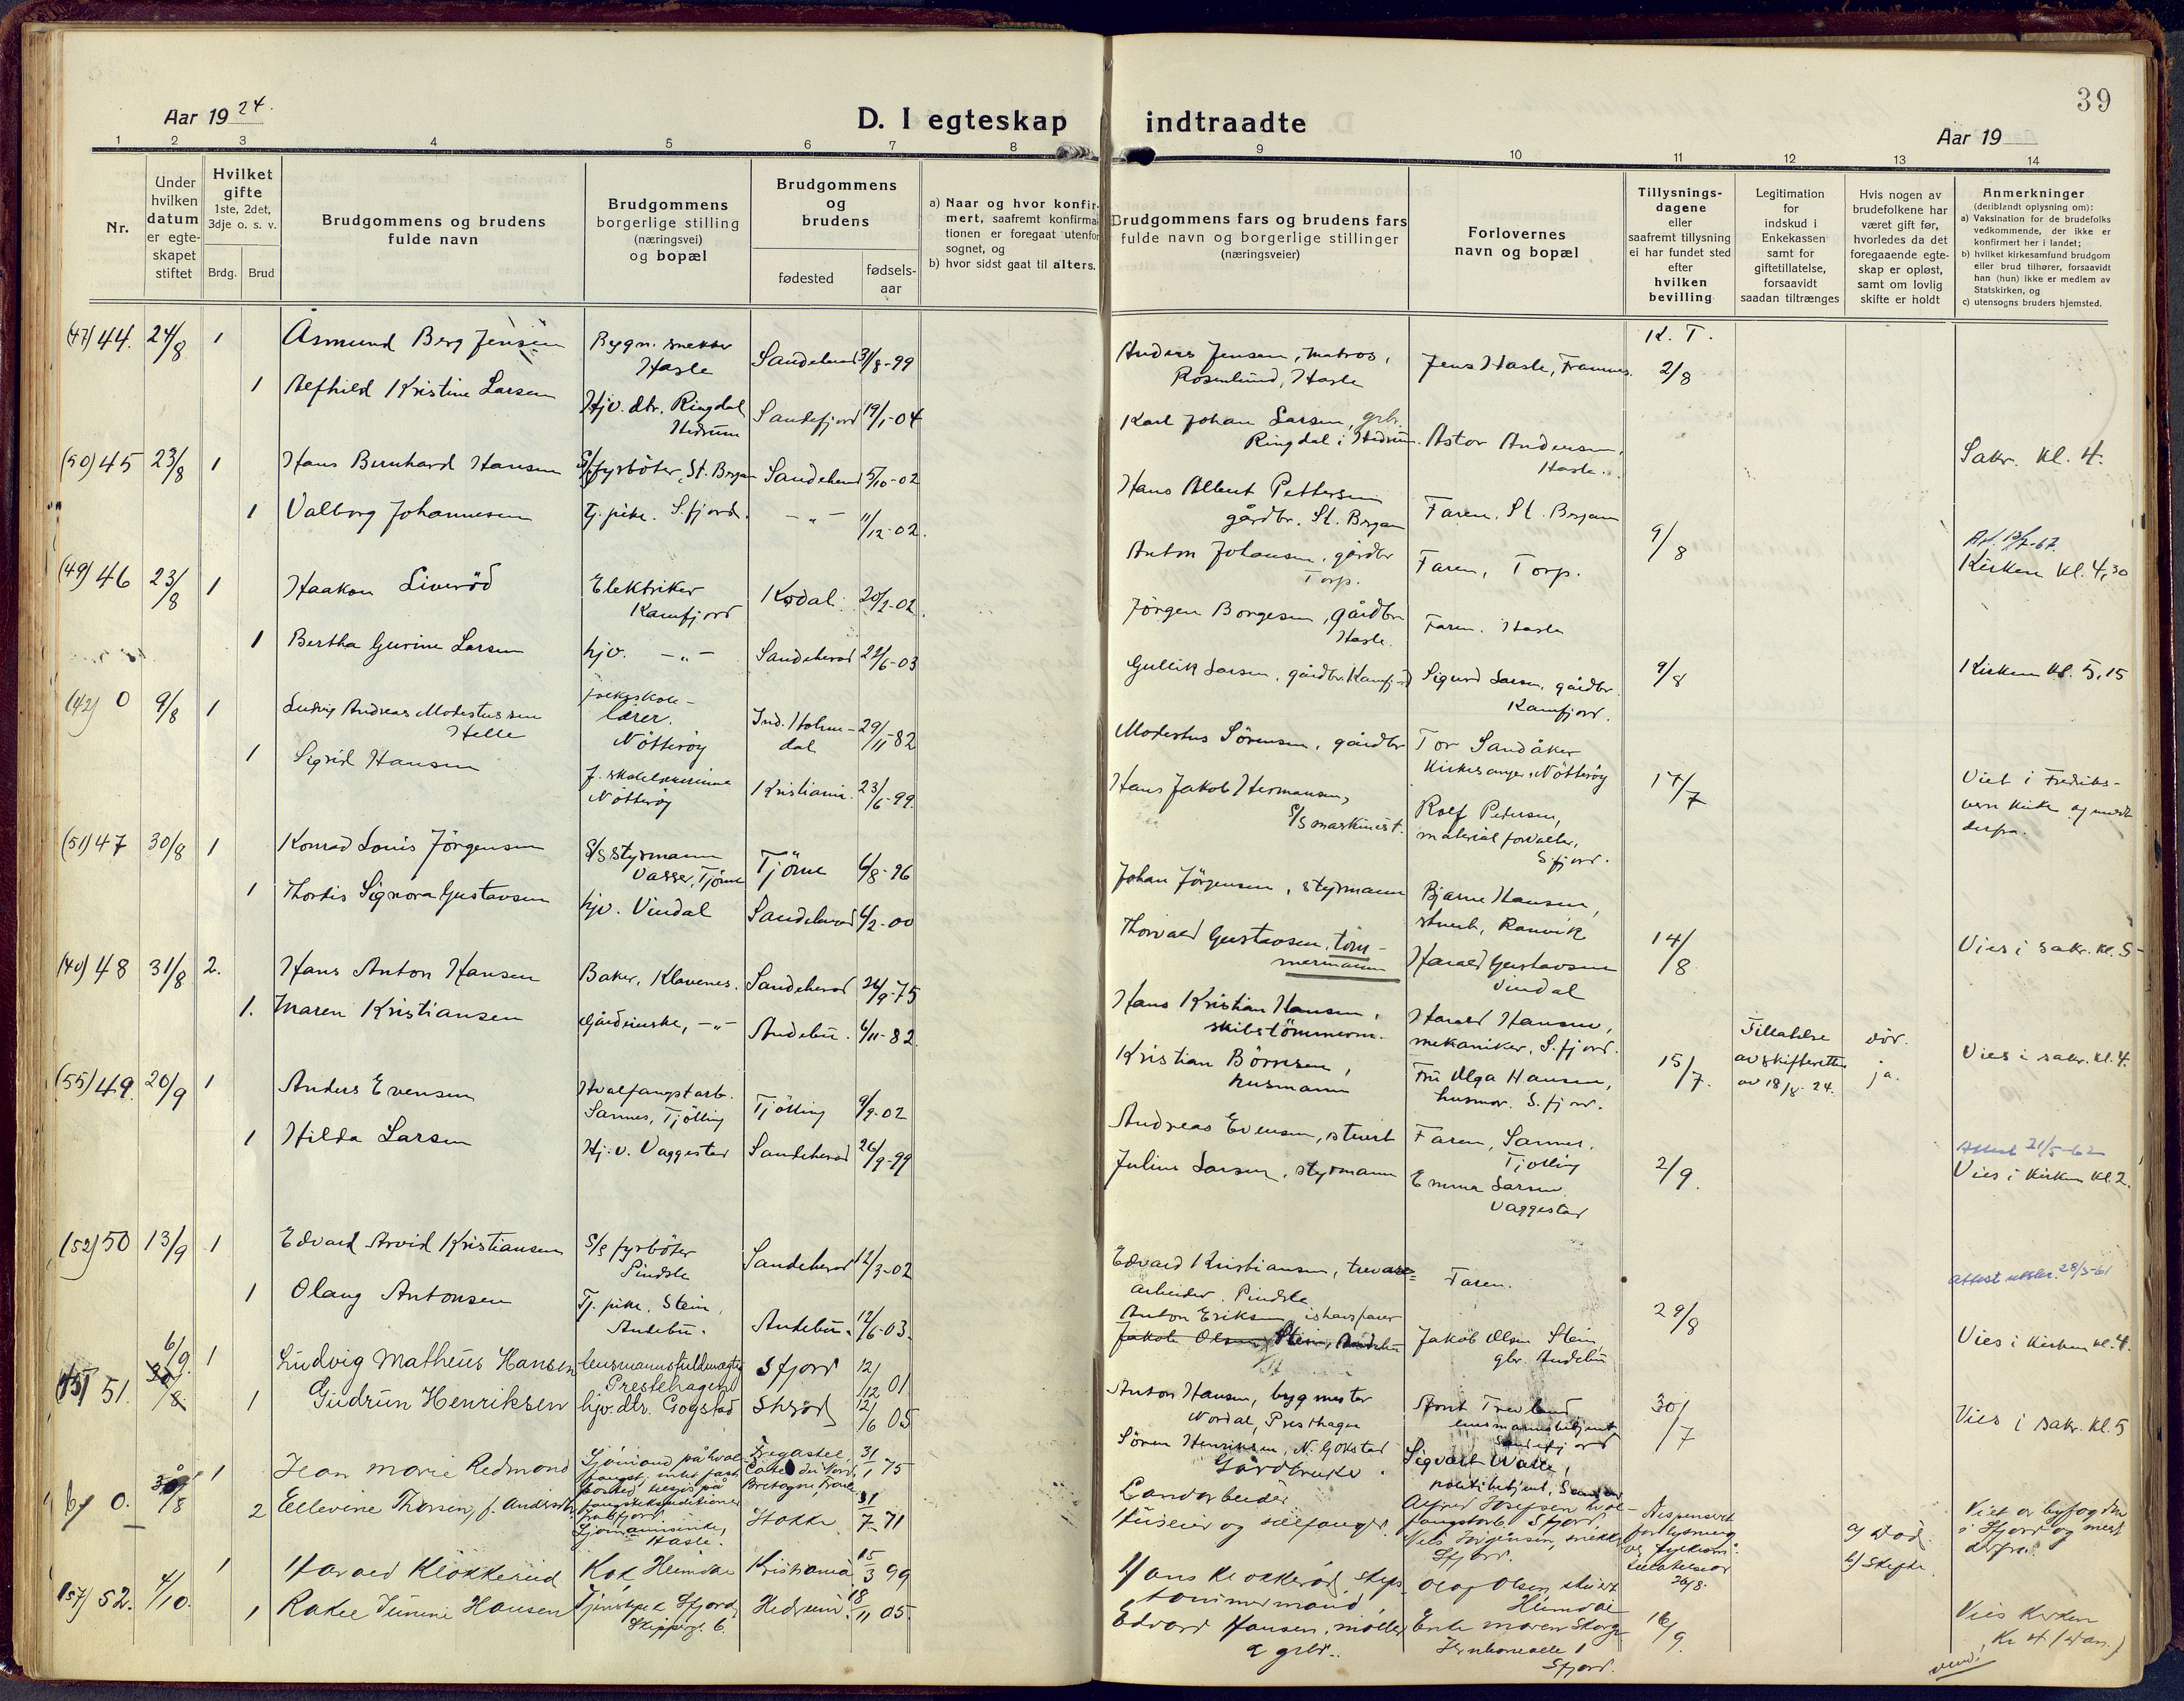 39
Aar 1924.
D. I egteskap indtraadte
Aar 19
1 2 3 4 5 6 7 8 9 10 11 12 13 14
Nr.
Under hvilken datum er egte-skapet stiftet
Hvilket gifte 1ste, 2det, 3dje o. s. v.
Brdg. Brud
Brudgommens og brudens fulde navn
Brudgommens borgerlige stilling (næringsvei) og bopæl
Brudgommens og brudens
fødested
fødsels-aar
a) Naar og hvor konfir-
mert, saafremt konfirma-
tionen er foregaat utenfor
sognet, og
b) hvor sidst gaat til alters.
Brudgommens fars og brudens fars
fulde navn og borgerlige stillinger
(næringsveier)
Forlovernes
navn og bopæl
Tillysnings-
dagene
eller
saafremt tillysning
ei har fundet sted
efter
hvilken
bevilling
Legitimation
for
indskud i
Enkekassen
samt for
giftetillatelse,
forsaavidt
saadan tiltrænges
Hvis nogen av
brudefolkene har
været gift før,
hvorledes da det
foregaaende egte-
skap er opløst,
samt om lovlig
skifte er holdt
Anmerkninger
(deriblandt oplysning om):
a) Vaksination for de brudefolks
vedkommende, der ikke er
konfirmert her i landet;
b) hvilket kirkesamfund brudgom
eller brud tilhører, forsaavidt
han (hun) ikke er medlem av
Statskirken, og
c) utensogns bruders hjemsted.
(47) 44. 24/8 1 Asmund Berg Jensen Bygn. snekker Hasle Sandeherad 31/8-99
Anders Jensen, matros, Rosenlund, Hasle Jens Hasle, Framnes. K. T. 2/8
1 Alfhild Kristine Larsen Hjv. dtr. Ringdal Hedrum Sandefjord 19/1-04
Karl Johan Larsen, grbr. Ringdal i Hedrum. Astor Andersen, Hasle. Sakr. kl. 4.
(50) 45 23/8 1 Hans Bernhard Hansen S/S fyrböter, St. Bergan Sandeherad 5/10-02
Hans Albert Pettersen gårdbr. St. Bergan Faren, St. Bergan 9/8
1 Valborg Johannesen Tj. pike. S.fjord. -"- 11/12-02.
Anton Johansen, gårdbr Torp. Faren, Torp. Kirken kl. 4,30
(49) 46 23/8 1 Haakon Liveröd Elektriker Kamfjord Kodal 20/2-02.
Jörgen Borgesen, gårdbr Hasle. Faren. Hasle 9/8
1 Bertha Gurine Larsen hjv. -"- Sandeherad 22/6-03
Gullik Larsen, gårdbr. Kamfjord Sigurd Larsen, gårdbr. Kamfjord. Kirken kl. 5,15
(42) 0 9/8 1 Ludvig Andreas Modestussen Helle folkeskole-lærer. Nötteröy Ind. Holme-dal 29/11-82
Modestus Sörensen, gårdbr Tor Sandåker Kirkesanger, Nötteröy 17/7
1 Sigrid Hansen f. skolelærerinne Nötteröy Kristiania. 23/6-99.
Hans Jakob Hermansen, S/S maskinist. Rolf Petersen, material forvalter, S.fjord. Viet i Fredriks-vern kirke og meldt derfra.
(51) 47 30/8 1 Konrad Louis Jörgensen S/S styrmann Vasser, Tjöme Tjöme 6/8-96
Johan Jörgensen, styrmann Bjarne Hansen, stuert, Ranvik 14/8
1 Thordis Signora Gustavsen hjv. Vindal Sandeherad 6/2-00
Thorvald Gustavsen, töm-mermann Harald Gustavsen Vindal Vies i sakr. kl. 5-
(40) 48 31/8 2. Hans Anton Hansen Baker, Klavenes. Sandeherad 26/9-75
Hans Kristian Hansen, skibstömmerm. Harald Hansen, mekaniker, S.fjord. 15/7. Tillatelse av skifteretten av 18/8-24. död. ja.
1. Maren Kristiansen Gårdeierske, -"- Andebu. 6/11-82.
Kristian Börresen, husmann Fru Olga Hansen, husmor. S.fjord. Vies i sakr. kl. 4.
(55) 49. 20/9 1 Anders Evensen Hvalfangstarb. Sannes, Tjölling Tjölling 9/9-02
Andreas Evensen, stuert Faren, Sannes, Tjölling 2/9.
1 Hilda Larsen Hj.v. Vaggestad Sandeherad 26/9-99
Julius Larsen, styrmann Emma Larsen Vaggestad Attest 21/5-62 Vies i kirken kl 2.
(52) 50 13/9 1 Edvard Arvid Kristiansen S/S fyrböter Pindsle Sandeherad 12/3-02
Edvard Kristiansen, trevare-arbeider, Pindsle Faren. 29/8 Attest utstedt. 28/3-61
1 Olang Antonsen Tj. pike, Stein, Andebu. Andebu. 12/6-03.
Anton Eriksen ishavsfarer Jakob Olsen, Stein, Andebu Jakob Olsen Stein, gbr. Andebu Vies i kirken kl. 4.
51. 6/9. 30/8 1 Ludvig Matheus Hansen lensmannsfuldmægtig Prestehagen S fjord 12/12 01
Anton Hansen, bygmester Nordal, Presthagen lensmannsbetjent, Sandefjord 30/7
1 Gudrun Henriksen hjv. dtr. Gogstad 12/6 05
Sören Henriksen, N. Gokstad Gårdbruker. Sigvart Valle, politibetjent, Vies i sakr. kl. 5
0. 30/8 1 Jean Marie Redmond Sjömand på hval-fangst, intet fast bosted Bretagne, Frankr. 31/1 75
Landarbeider Alfred Josefsen hval-fangstarb. Sfjord
2 Ellevine Thorsen, f. Andersen Sjömannsenke, Hasle. Stokke 31/7 71
Huseier og selfanger. Nils Jörgensen, snekker Sfjord. Dispensert fra lysning 26/8. a) död. b) Skifte Viet av byfogden i Sfjord og meldt derfra.
(57) 52. 4/10. 1 Harald Klokkerud Kok Heimdal Kristiania 15/3 99
Hans Klokkeröd, skips-tømmermand, Olaf Olsen, stuert Heimdal 16/9.
1 Rakel Jünni Hansen Tjenstepike Sfjord, Skipperg. 6. Hedrum. 18/11 05.
Edvard Hansen, möller & grbr. Enke Maren Skorge Jernbanealle 1 Sfjord. Vies kirken
vend.